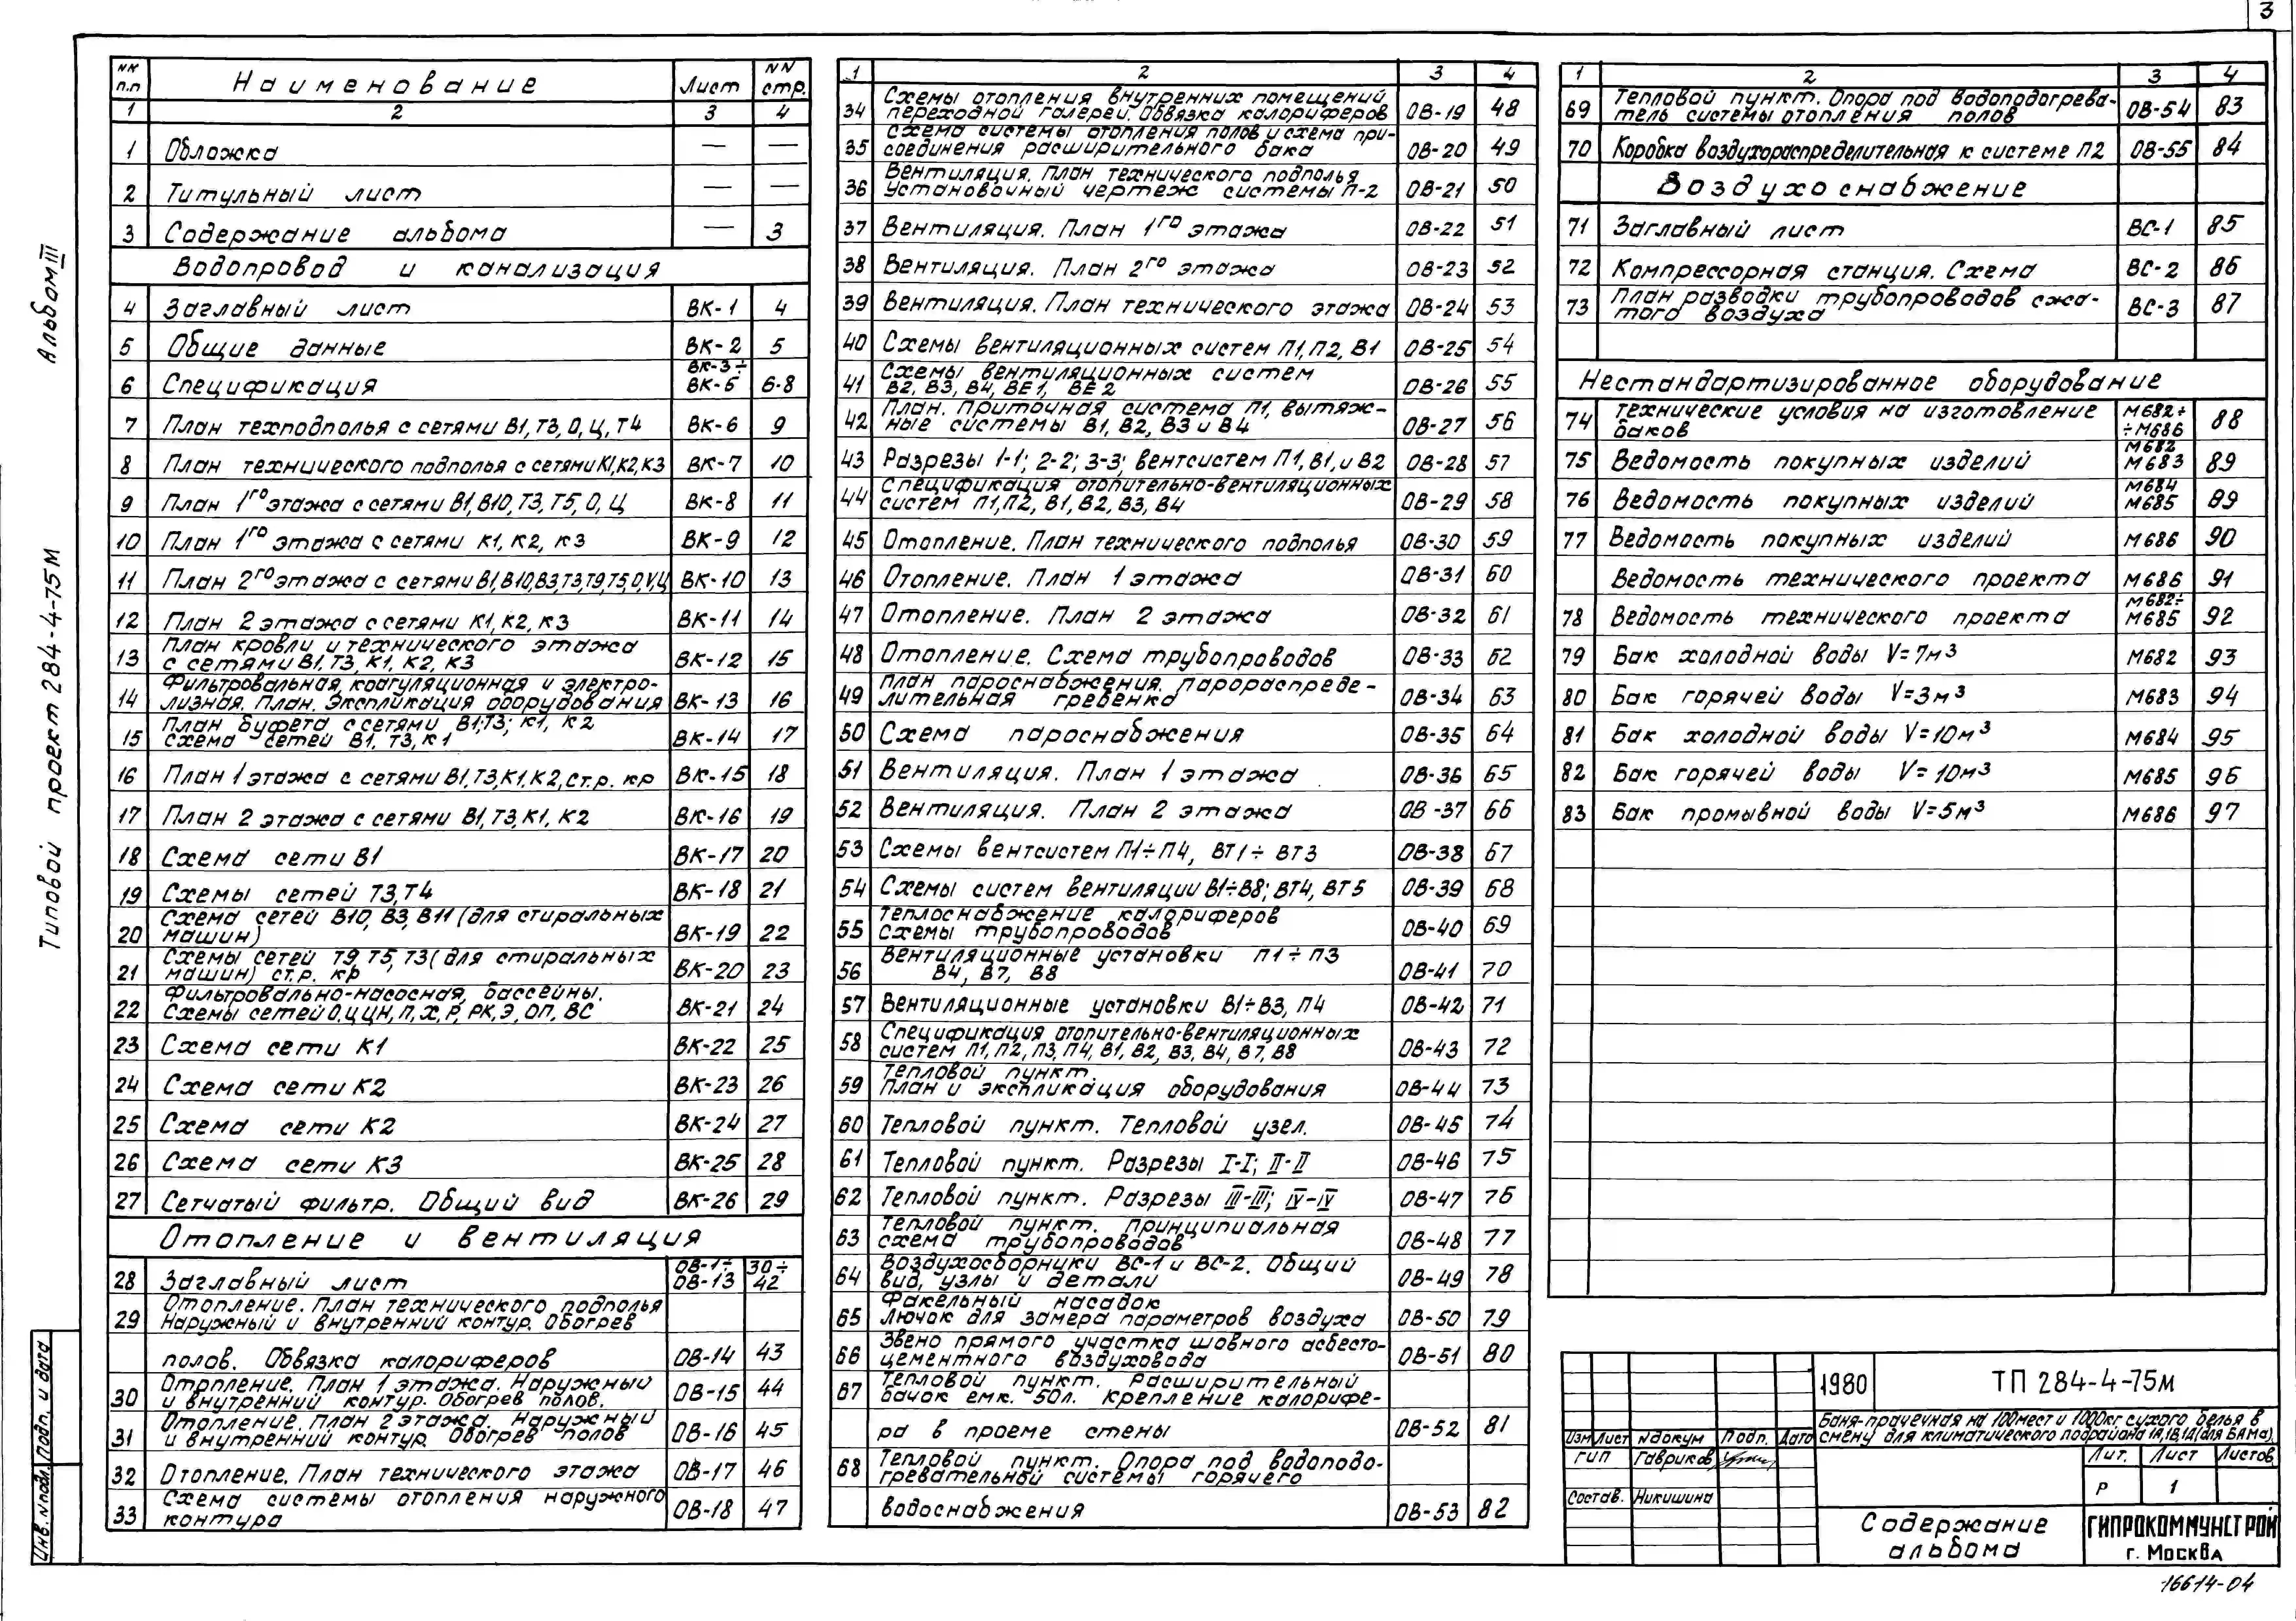 3
Альбом III
Типовой проект 284-4-75м
Инв. № подл. Подп. и дата
NN п.п Наименование Лист NN стр.
1 2 3 4
1 Обложка — —
2 Титульный лист — —
3 Содержание альбома — 3
Водопровод и канализация
4 Заглавный лист ВК-1 4
5 Общие данные ВК-2 5
6 Спецификация ВК-3÷ ВК-5 6-8
7 План техподполья с сетями В1, Т3, О, Ц, Т4 ВК-6 9
8 План технического подполья с сетями К1, К2, К3 ВК-7 10
9 План 1го этажа с сетями В1, В10, Т3, Т5, О, Ц ВК-8 11
10 План 1го этажа с сетями К1, К2, К3 ВК-9 12
11 План 2го этажа с сетями В1, В10, В3, Т3, Т9, Т5, О, V, Ц ВК-10 13
12 План 2 этажа с сетями К1, К2, К3 ВК-11 14
13 План кровли и технического этажа
с сетями В1, Т3, К1, К2, К3 ВК-12 15
14 Фильтровальная, коагуляционная и электро-
лизная. План. Экспликация оборудования ВК-13 16
15 План буфета с сетями В1; Т3; К1, К2
схема сетей В1, Т3, К1 ВК-14 17
16 План 1 этажа с сетями В1, Т3, К1, К2, ст. р. кр ВК-15 18
17 План 2 этажа с сетями В1, Т3, К1, К2 ВК-16 19
18 Схема сети В1 ВК-17 20
19 Схемы сетей Т3, Т4 ВК-18 21
20 Схема сетей В10, В3, В11 (для стиральных
машин) ВК-19 22
21 Схемы сетей Т9, Т5, Т3 (для стиральных
машин) ст. р. кр ВК-20 23
22 Фильтровально-насосная, бассейны.
Схемы сетей О, Ц, ЦН, П, Х, Р, РК, Э, ОП, ВС ВК-21 24
23 Схема сети К1 ВК-22 25
24 Схема сети К2 ВК-23 26
25 Схема сети К2 ВК-24 27
26 Схема сети К3 ВК-25 28
27 Сетчатый фильтр. Общий вид ВК-26 29
Отопление и вентиляция
28 Заглавный лист ОВ-1÷ ОВ-13 30÷ 42
29 Отопление. План технического подполья
Наружный и внутренний контур. Обогрев
полов. Обвязка калориферов ОВ-14 43
30 Отопление. План 1 этажа. Наружный
и внутренний контур. Обогрев полов. ОВ-15 44
31 Отопление. План 2 этажа. Наружный
и внутренний контур. Обогрев полов ОВ-16 45
32 Отопление. План технического этажа ОВ-17 46
33 Схема системы отопления наружного
контура ОВ-18 47
1 2 3 4
34 Схемы отопления внутренних помещений
переходной галереи. Обвязка калориферов ОВ-19 48
35 Схема системы отопления полов и схема при-
соединения расширительного бака ОВ-20 49
36 Вентиляция. План технического подполья
Установочный чертеж системы П-2 ОВ-21 50
37 Вентиляция. План 1го этажа ОВ-22 51
38 Вентиляция. План 2го этажа ОВ-23 52
39 Вентиляция. План технического этажа ОВ-24 53
40 Схемы вентиляционных систем П1, П2, В1 ОВ-25 54
41 Схемы вентиляционных систем
В2, В3, В4, ВЕ1, ВЕ2 ОВ-26 55
42 План. Приточная система П1, вытяж-
ные системы В1, В2, В3 и В4 ОВ-27 56
43 Разрезы 1-1; 2-2; 3-3; вентсистем П1, В1, и В2 ОВ-28 57
44 Спецификация отопительно-вентиляционных
систем П1, П2, В1, В2, В3, В4 ОВ-29 58
45 Отопление. План технического подполья ОВ-30 59
46 Отопление. План 1 этажа ОВ-31 60
47 Отопление. План 2 этажа ОВ-32 61
48 Отопление. Схема трубопроводов ОВ-33 62
49 План пароснабжения. Парораспреде-
лительная гребенка ОВ-34 63
50 Схема пароснабжения ОВ-35 64
51 Вентиляция. План 1 этажа ОВ-36 65
52 Вентиляция. План 2 этажа ОВ-37 66
53 Схемы вентсистем П1÷П4, ВТ1÷ВТ3 ОВ-38 67
54 Схемы систем вентиляции В1÷В8; ВТ4, ВТ5 ОВ-39 68
55 Теплоснабжение калориферов
Схемы трубопроводов ОВ-40 69
56 Вентиляционные установки П1÷П3
В4, В7, В8 ОВ-41 70
57 Вентиляционные установки В1÷В3, П4 ОВ-42 71
58 Спецификация отопительно-вентиляционных
систем П1, П2, П3, П4, В1, В2, В3, В4, В7, В8 ОВ-43 72
59 Тепловой пункт.
План и экспликация оборудования ОВ-44 73
60 Тепловой пункт. Тепловой узел. ОВ-45 74
61 Тепловой пункт. Разрезы I-I; II-II ОВ-46 75
62 Тепловой пункт. Разрезы III-III; IV-IV ОВ-47 76
63 Тепловой пункт. Принципиальная
схема трубопроводов ОВ-48 77
64 Воздухосборники ВС-1 и ВС-2. Общий
вид, узлы и детали ОВ-49 78
65 Факельный насадок
Лючок для замера параметров воздуха ОВ-50 79
66 Звено прямого участка шовного асбесто-
цементного воздуховода ОВ-51 80
67 Тепловой пункт. Расширительный
бачок емк. 50л. Крепление калорифе-
ра в проеме стены ОВ-52 81
68 Тепловой пункт. Опора под водоподо-
гревательной системы горячего
водоснабжения ОВ-53 82
1 2 3 4
69 Тепловой пункт. Опора под водоподогрева-
тель системы отопления полов ОВ-54 83
70 Коробка воздухораспределительная к системе П2 ОВ-55 84
Воздухоснабжение
71 Заглавный лист ВС-1 85
72 Компрессорная станция. Схема ВС-2 86
73 План разводки трубопроводов сжа-
того воздуха ВС-3 87
Нестандартизированное оборудование
74 Технические условия на изготовление
баков М682÷ ÷М686 88
75 Ведомость покупных изделий М682 М683 89
76 Ведомость покупных изделий М684 М685 89
77 Ведомость покупных изделий М686 90
Ведомость технического проекта М686 91
78 Ведомость технического проекта М682÷ М685 92
79 Бак холодной воды V=7м³ М682 93
80 Бак горячей воды V=3м³ М683 94
81 Бак холодной воды V=10м³ М684 95
82 Бак горячей воды V=10м³ М685 96
83 Бак промывной воды V=5м³ М686 97
1980 ТП 284-4-75м
Баня-прачечная на 100 мест и 1000кг. сухого белья в
смену для климатического подрайона 1А, 1В, 1Д (для БАМа)
Изм Лист № докум Подп. Дата
ГИП Гавриков
Состав. Никишина
Лит. Лист Листов
Р 1
Содержание
альбома
ГИПРОКОММУНСТРОЙ
г. Москва
16614-04